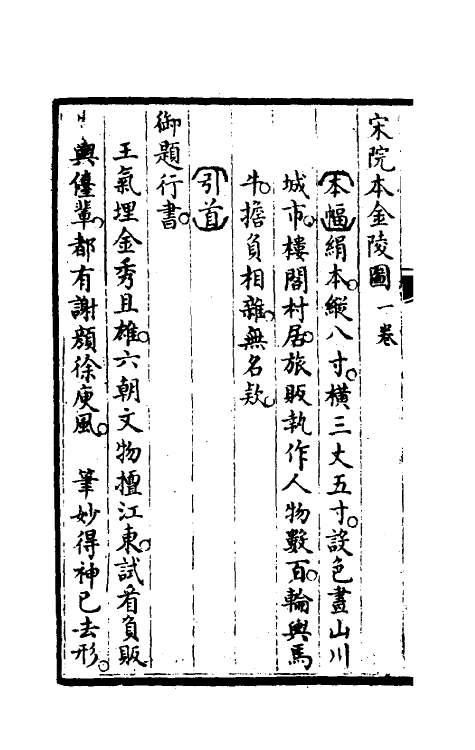 宋院本金陵圖一卷
【本幅】絹本。縱八寸。橫三丈五寸。設色畫山川
城市。樓閣村居。旅販執作人物數百。輪輿馬
牛。擔負相雜。無名欵。
【引首】
御題行書。
王氣埋金秀且雄。六朝文物擅江東。試看負販
輿儓輩。都有謝顏徐庾風。　筆妙得神已去形。